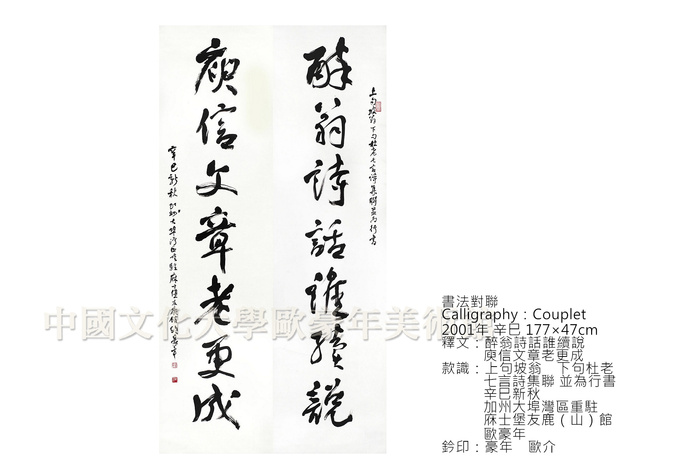 醉翁詩話誰續說
上句坡翁下句杜老七言詩集聯並為行書
庾信文章老更成
辛巳新秋加州大埠灣區重駐麻士堡友鹿山館歐豪年
中國文化大學歐豪年美術
書法對聯
Calligraphy：Couplet
2001年 辛巳 177×47cm
釋文：醉翁詩話誰續說
庾信文章老更成
款識：上句坡翁　下句杜老
七言詩集聯 並為行書
辛巳新秋
加州大埠灣區重駐
庥士堡友鹿（山）館
歐豪年
鈐印：豪年　歐介